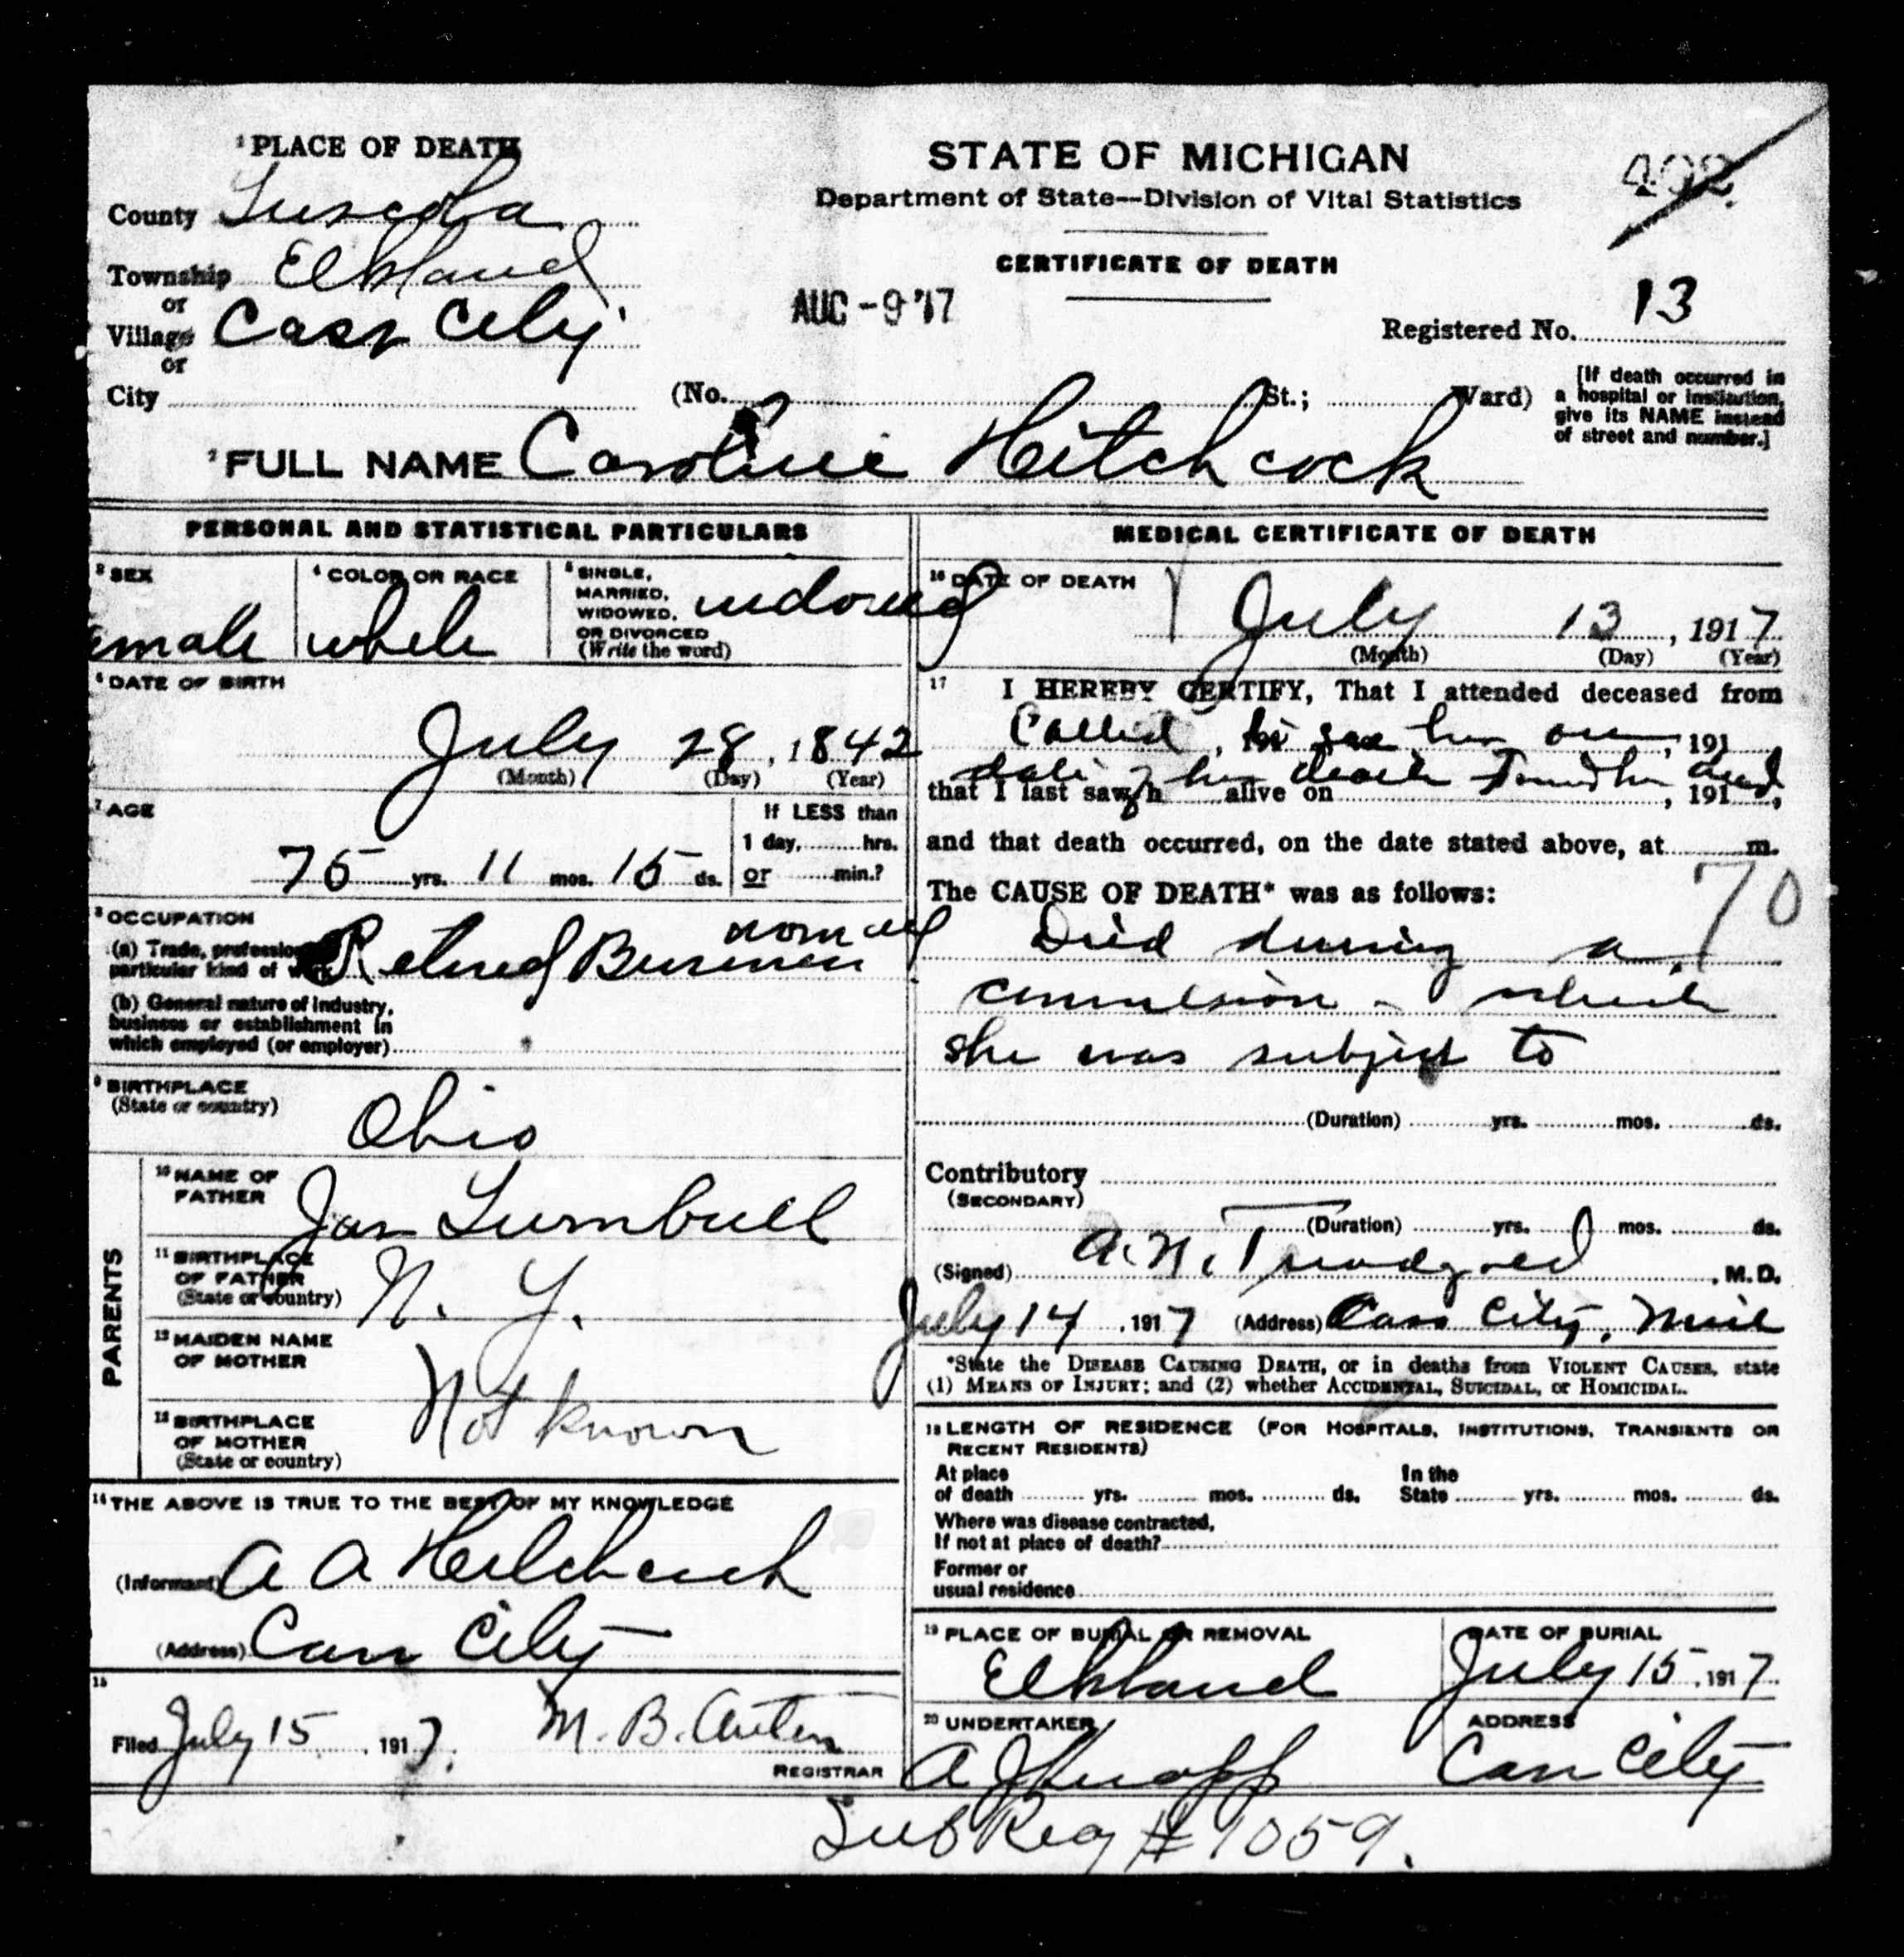 ¹PLACE OF DEATH
County Tuscola
Township Elkland
or
Village Cass City
or
City
STATE OF MICHIGAN
Department of State—Division of Vital Statistics
CERTIFICATE OF DEATH
AUG -9 '17
Registered No. 13
(No. St.; Ward)
[If death occurred in
a hospital or institution,
give its NAME instead
of street and number.]
²FULL NAME Caroline Hitchcock
PERSONAL AND STATISTICAL PARTICULARS
³SEX
emale
⁴COLOR OR RACE
white
⁵SINGLE,
MARRIED,
WIDOWED,
OR DIVORCED
(Write the word)
widowed
⁶DATE OF BIRTH
July 28, 1842
(Month) (Day) (Year)
⁷AGE
75 yrs. 11 mos. 15 ds.
If LESS than
1 day, hrs.
or min.?
⁸OCCUPATION
(a) Trade, profession
particular kind of work
Retired Business woman
(b) General nature of industry,
business or establishment in
which employed (or employer)
⁹BIRTHPLACE
(State or country)
Ohio
PARENTS
¹⁰NAME OF
FATHER
Jas Turnbull
¹¹BIRTHPLACE
OF FATHER
(State or country)
N. Y.
¹²MAIDEN NAME
OF MOTHER
¹³BIRTHPLACE
OF MOTHER
(State or country)
Not known
¹⁴THE ABOVE IS TRUE TO THE BEST OF MY KNOWLEDGE
(Informant) A A Hitchcock
(Address) Cass City
¹⁵
Filed July 15, 1917. M. B. Auten
REGISTRAR
MEDICAL CERTIFICATE OF DEATH
¹⁶DATE OF DEATH
July 13, 1917
(Month) (Day) (Year)
¹⁷ I HEREBY CERTIFY, That I attended deceased from
Called, to see her on, 191
date of her death Found her dead
that I last saw h alive on, 191 ,
and that death occurred, on the date stated above, at m.
The CAUSE OF DEATH* was as follows:
70
Died during a
convulsion - which
she was subject to
(Duration) yrs. mos. ds.
Contributory
(SECONDARY)
(Duration) yrs. mos. ds.
(Signed) A. N. Treadgold, M.D.
July 14, 1917 (Address) Cass City, Mich
*State the DISEASE CAUSING DEATH, or in deaths from VIOLENT CAUSES, state
(1) MEANS OF INJURY; and (2) whether ACCIDENTAL, SUICIDAL, or HOMICIDAL.
¹⁸LENGTH OF RESIDENCE (FOR HOSPITALS, INSTITUTIONS, TRANSIENTS OR
RECENT RESIDENTS)
At place
of death yrs. mos. ds.
In the
State yrs. mos. ds.
Where was disease contracted,
If not at place of death?
Former or
usual residence
¹⁹PLACE OF BURIAL OR REMOVAL
Elkland
DATE OF BURIAL
July 15, 1917.
²⁰UNDERTAKER
A J Knapp
ADDRESS
Cass City
Sub Reg # 1059.